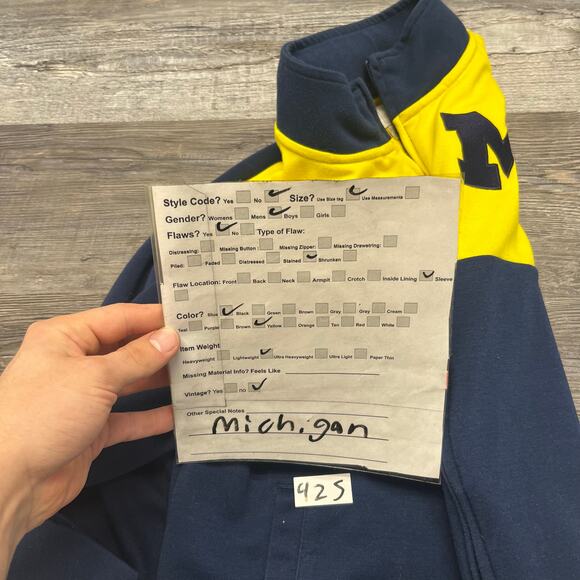 M
Style Code? Yes No Size? Use Size tag Use Measurements
Gender? Womens Mens Boys Girls
Flaws? Yes No Type of Flaw:
Distressing: Missing Button Missing Zipper: Missing Drawstring:
Piled: Faded Distressed Stained Shrunken
Flaw Location: Front Back Neck Armpit Crotch Inside Lining Sleeve
Color? Blue Black Green Brown Gray Gray Cream
Teal Purple Brown Yellow Orange Tan Red White
Item Weight
Heavyweight Lightweight Ultra Heavyweight Ultra Light Paper Thin
Missing Material Info? Feels Like
Vintage? Yes no
Other Special Notes
Michigan
425